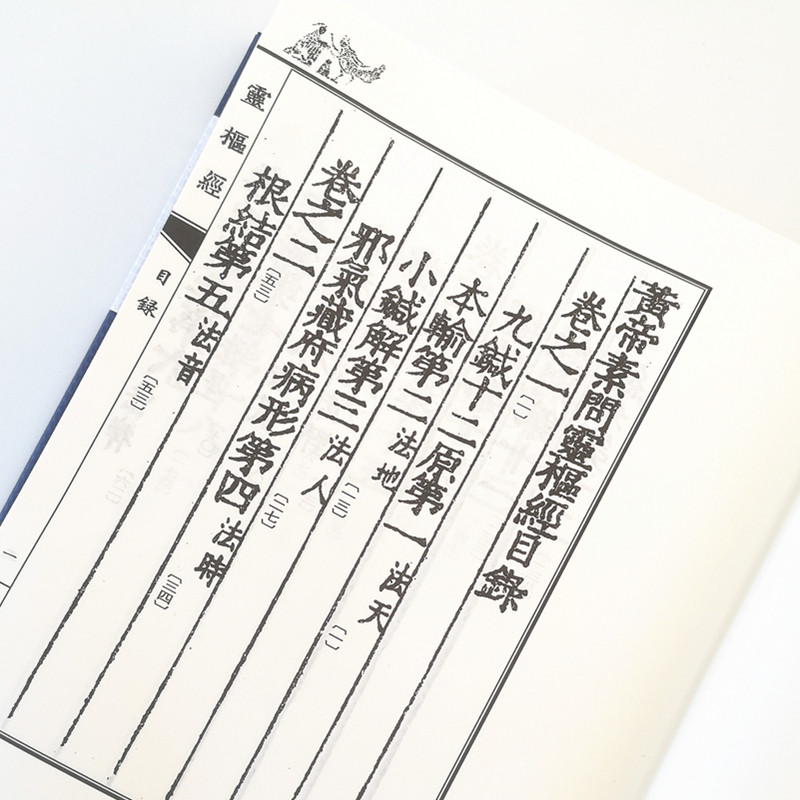 黃帝素問靈樞經目錄
卷之一〔一〕
九鍼十二原第一 法天〔一〕
本輸第二 法地〔一三〕
小鍼解第三 法人〔二七〕
邪氣藏府病形第四 法時〔三四〕
卷之二〔五三〕
根結第五 法音〔五三〕
靈樞經
目錄
一